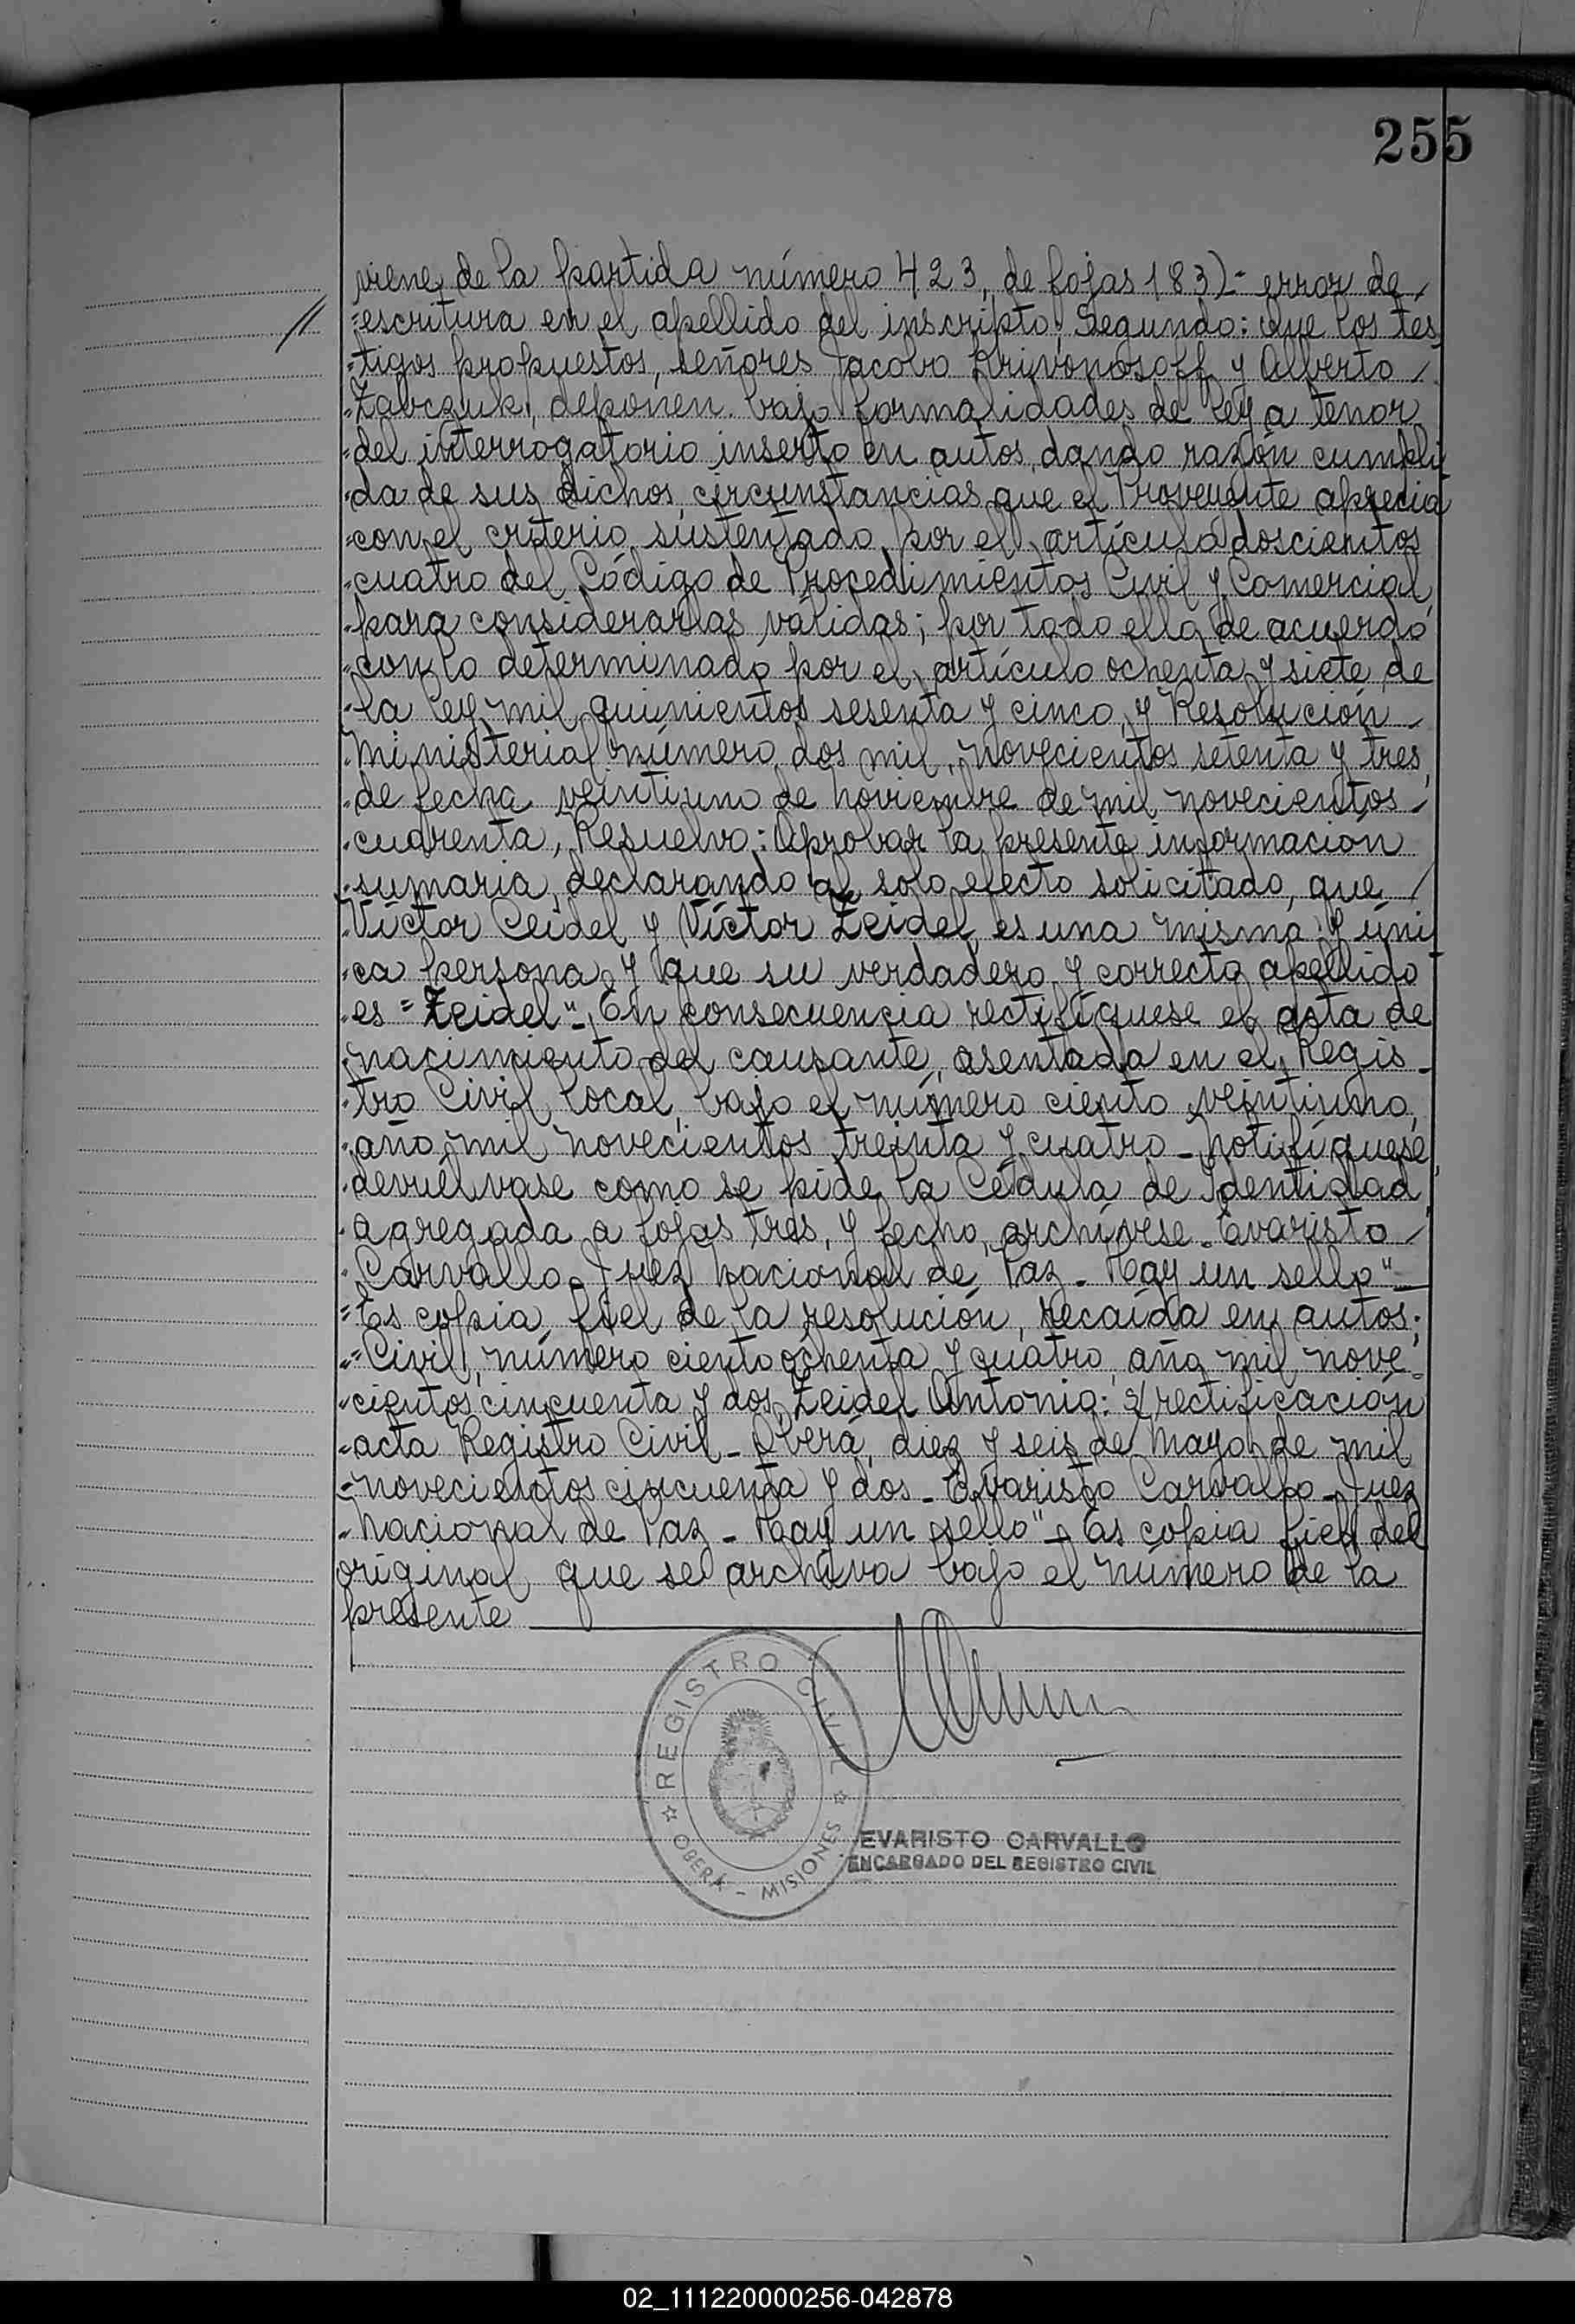 255
viene de la partida número 423, de fojas 183)- error de
=escritura en el apellido del inscripto, Segundo: que los tes
=tigos propuestos, señores Jacobo Krivonosoff y Alberto
"Zabczuk, deponen bajo formalidades de ley a tenor
=del interrogatorio inserto en autos, dando razón cumpli
"da de sus dichos, circunstancias que el Proveyente aprecia
=con el criterio sustentado por el artículo doscientos
"cuatro del Código de Procedimientos Civil y Comercial,
"para considerarlas válidas; por todo ello de acuerdo
"con lo determinado por el artículo ochenta y siete de
"la ley mil quinientos sesenta y cinco, y Resolución
"Ministerial número dos mil novecientos setenta y tres,
"de fecha veintiuno de noviembre de mil novecientos
"cuarenta, Resuelvo: Aprobar la presente información
"sumaria, declarando al solo efecto solicitado, que
"Víctor Ceidel y Víctor Zeidel, es una misma y úni
"ca persona, y que su verdadero y correcto apellido
"es "Zeidel"- En consecuencia rectifíquese el acta de
"nacimiento del causante, asentada en el Regis-
"tro Civil local, bajo el número ciento veintiuno,
"año mil novecientos treinta y cuatro - Notifíquese,
"devuélvase como se pide la Cédula de Identidad,
"agregada a fojas tres, y fecho, archívese. Evaristo
"Carvallo - Juez Nacional de Paz - Hay un sello"-
=Es copia fiel de la resolución, recaída en autos:
"=Civil, número ciento ochenta y cuatro, año mil nove-
"cientos cincuenta y dos, Zeidel Antonio: s/ rectificación
"acta Registro Civil - Oberá, diez y seis de Mayo de mil
"novecientos cincuenta y dos - Evaristo Carvallo - Juez
"Nacional de Paz - Hay un sello" - Es copia fiel del
original que se archiva bajo el número de la
presente
REGISTRO CIVIL
OBERÁ - MISIONES
EVARISTO CARVALLO
ENCARGADO DEL REGISTRO CIVIL
02_111220000256-042878